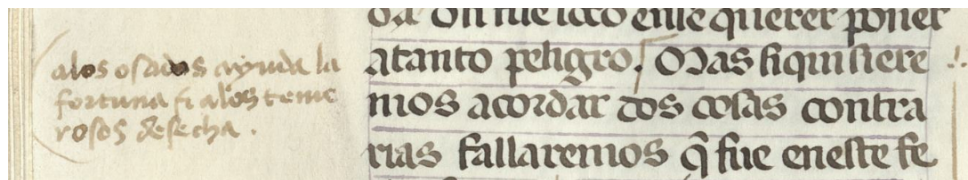 alos osados ayuda la
fortuna si alos teme
rosos desecha.
querer poner
atanto peligro. Mas si quisiere
mos acordar dos cosas contra
rias fallaremos q̃ fue eneste fe